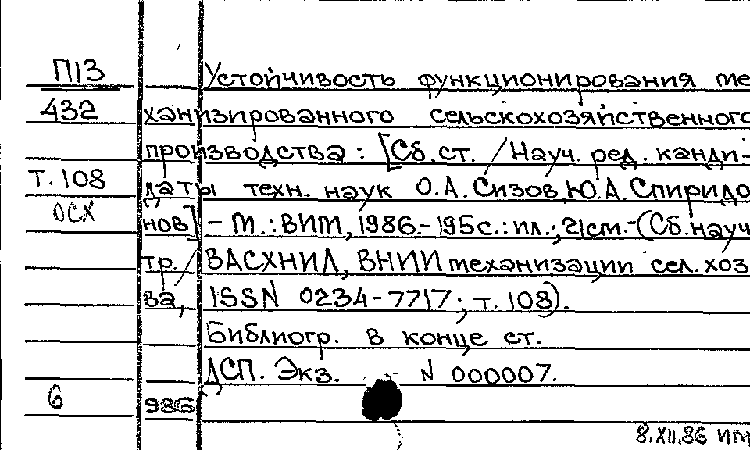 П13 Устойчивость функционирования ме
432 ханизированного сельскохозяйственного
производства: [Сб. ст. / Науч. ред. канди-
Т. 108 даты техн. наук О.А. Сизов, Ю.А. Спиридо
ОСХ нов] - М.: ВИМ, 1986.- 195с.: ил.; 21см.-(Сб. науч
тр. / ВАСХНИЛ, ВНИИ механизации сел. хоз
ва, ISSN 0234-7717; т. 108).
Библиогр. в конце ст.
ДСП. Экз. N 000007.
6 986
8.XII.86 ИМ